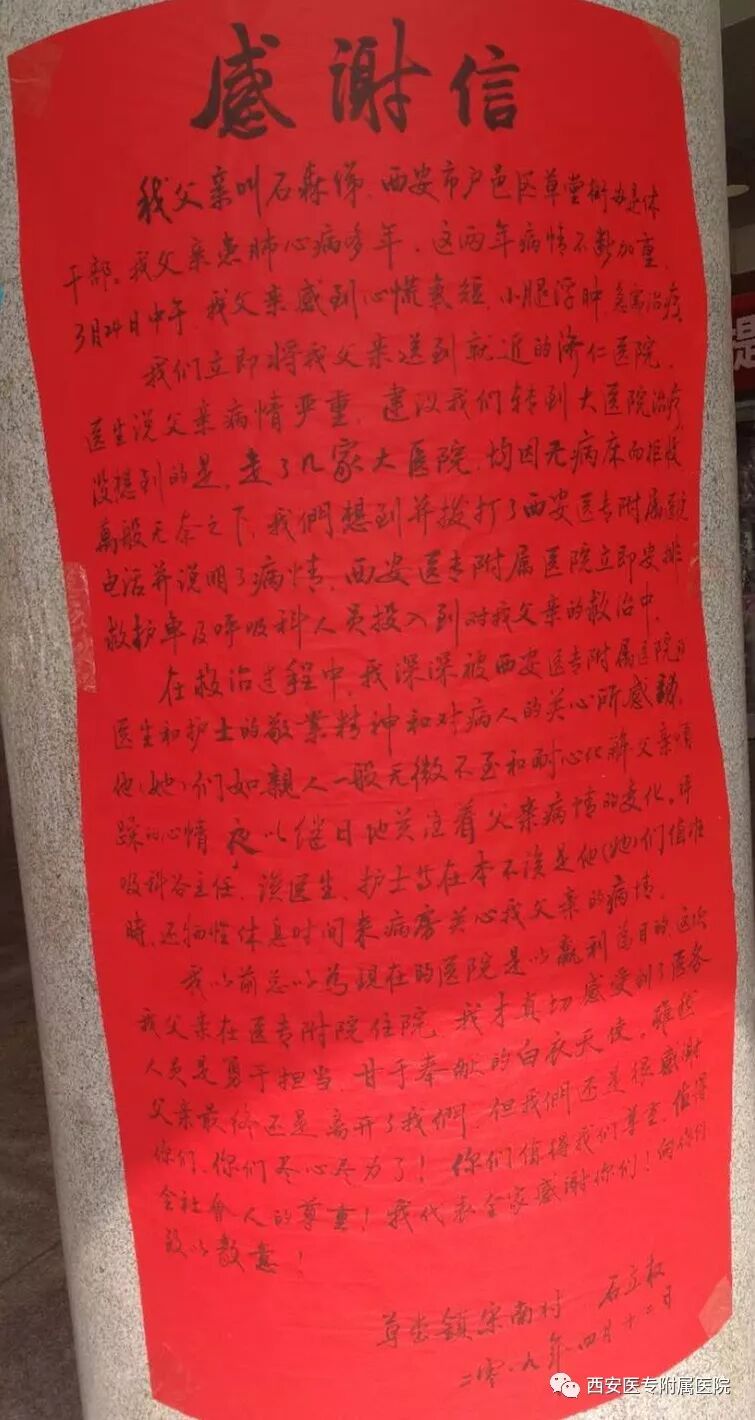 感谢信
我父亲叫石森绵,西安市户邑区草堂街办退休
干部。我父亲患肺心病多年,这两年病情不断加重,
3月24日中午,我父亲感到心慌气短,小腿浮肿,急需治疗。
我们立即将我父亲送到就近的济仁医院,
医生说父亲病情严重,建议我们转到大医院治疗
没想到的是,走了几家大医院,均因无病床而拒收
萬般无奈之下,我們想到并拨打了西安医专附属医院
电话并说明了病情,西安医专附属医院立即安排
救护車及呼吸科人员投入到对我父亲的救治中。
在救治过程中,我深深被西安医专附属医院的
医生和护士的敬業精神和对病人的关心所感動,
他(她)们如親人一般无微不至和耐心化解父亲烦
躁的心情,夜以继日地关注着父亲病情的变化。呼
吸科谷主任、 医生、护士等在本不该是他(她)们值班
時,还牺牲休息时间来病房关心我父亲的病情。
我以前总以為现在的医院是以赢利为目的,这次
我父亲在医专附院住院,我才真切感受到了医务
人员是勇于担当、甘于奉献的白衣天使。虽然
父亲最终还是离开了我們,但我們还是很感谢
你们,你们尽心尽力了!你们值得我们尊重,值得
全社會人的尊重!我代表全家感谢你们!向你们
致以敬意!
草堂镇宋南村 石立权
二零一九年四月十二日
西安医专附属医院
提